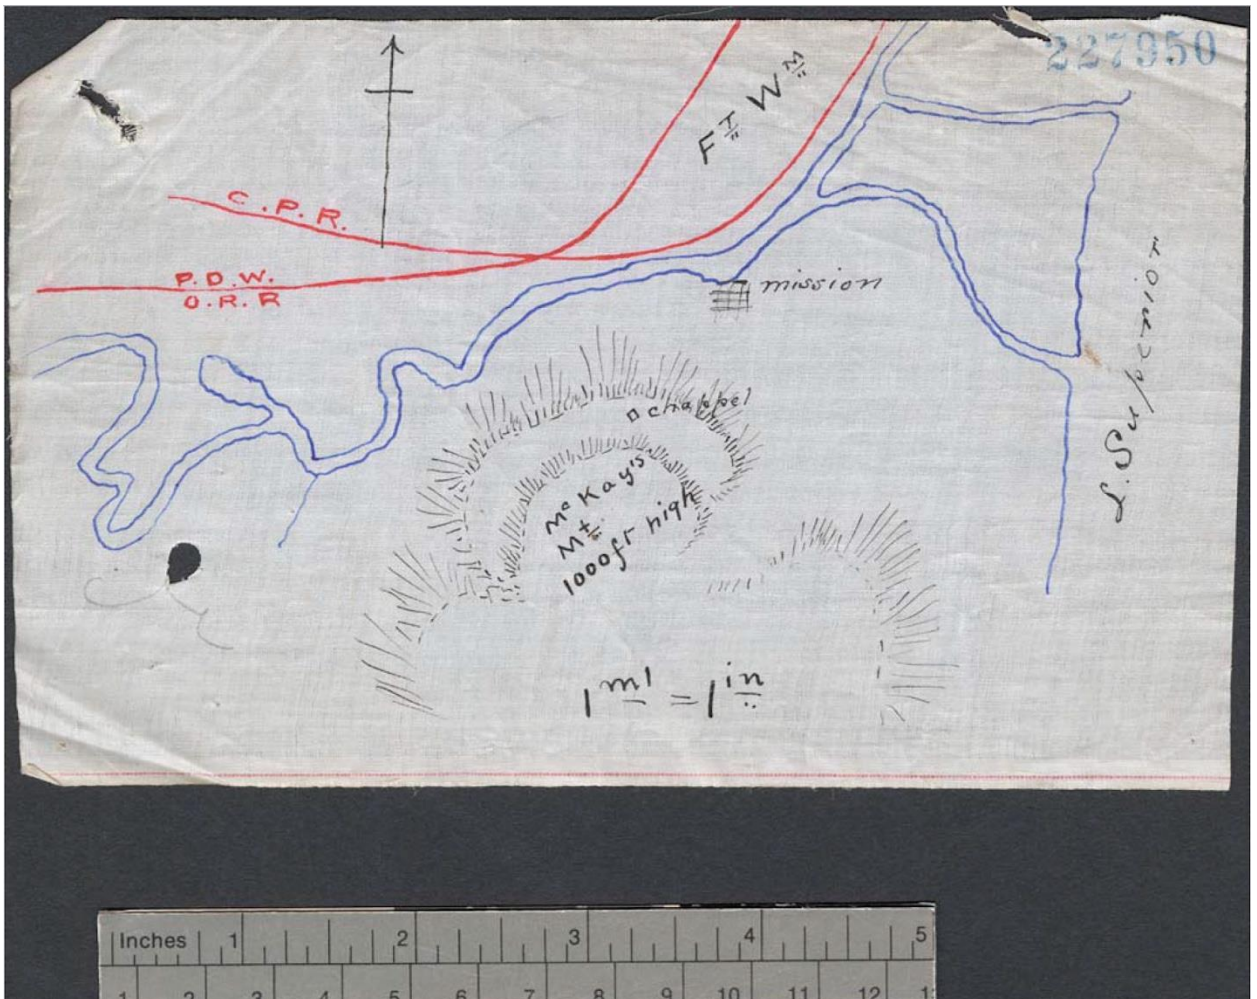 227950
Fᵀ Wᴹ
C.P.R.
P.D.W.
O.R.R
mission
L. Superior
chappel
McKay's
Mt
1000ft high
1ml = 1in
Inches 1 2 3 4 5
1 2 3 4 5 6 7 8 9 10 11 12